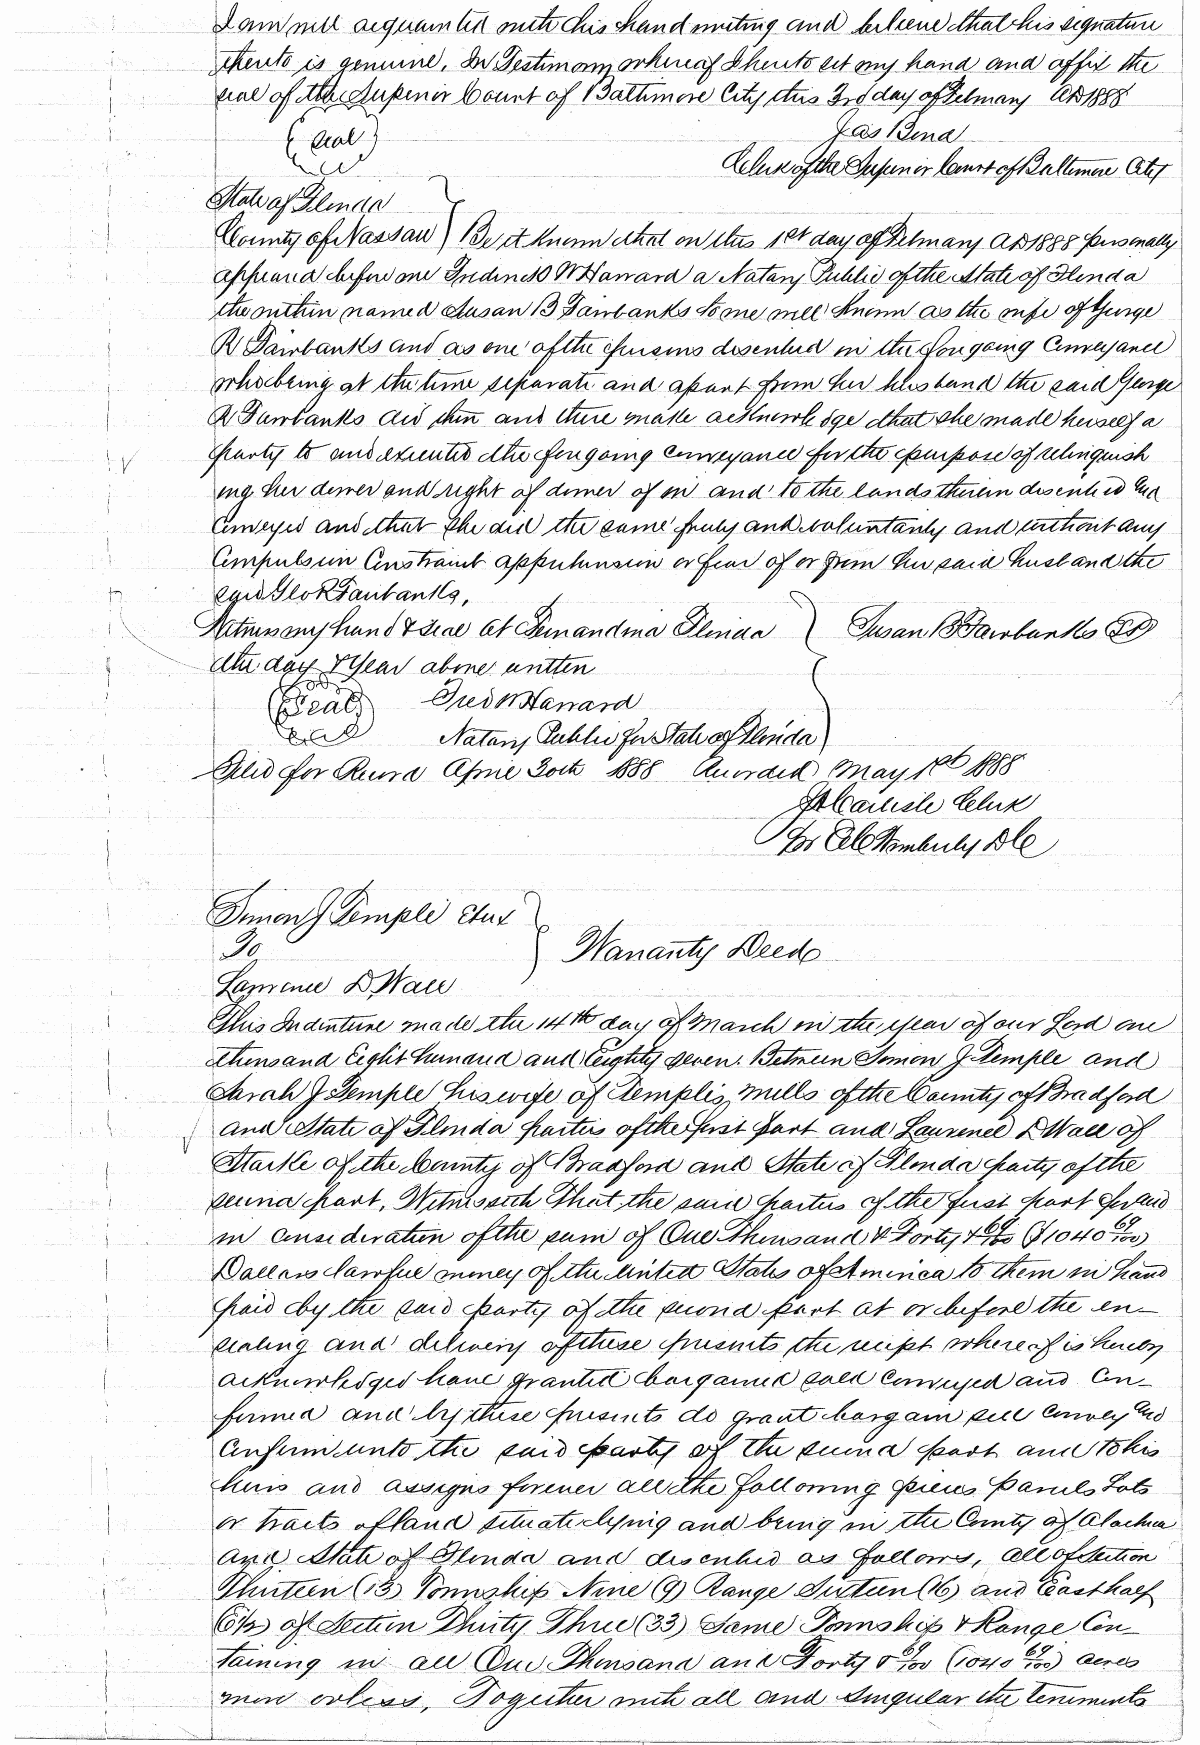 I am well acquainted with his hand writing and believe that his signature
thereto is genuine. In Testimony whereof I hereto set my hand and affix the
seal of the Superior Court of Baltimore City this 3rd day of February AD 1888
(Seal) Jas Bond
Clerk of the Superior Court of Baltimore City
State of Florida
County of Nassau } Be it known that on this 1st day of February AD 1888 personally
appeared before me Frederick W Harward a Notary Public of the State of Florida
the within named Susan B Fairbanks to me well known as the wife of George
R Fairbanks and as one of the persons described in the foregoing Conveyance
who being at the time separate and apart from her husband the said George
R Fairbanks did then and there make acknowledge that she made herself a
party to and executed the foregoing conveyance for the purpose of relinquish
ing her dower and right of dower of in and to the lands therein described and
Conveyed and that she did the same freely and voluntarily and without any
Compulsion Constraint apprehension or fear of or from her said husband the
said Geo R Fairbanks,
Witness my hand & seal at Fernandina Florida } Susan B Fairbanks
the day & year above written
(Seal) Fred W Harward
Notary Public for State of Florida
Filed for Record April 30th 1888 Recorded May 1st 1888
J A Carlisle Clerk
Per DC
Simon J Temple Etux
To } Warranty Deed
Lawrence D Wall
This Indenture made the 14th day of March in the year of our Lord one
thousand Eight hundred and Eighty seven. Between Simon J Temple and
Sarah J Temple his wife of Temples Mills of the County of Bradford
and State of Florida parties of the first part and Laurence D Wall of
Starke of the County of Bradford and State of Florida party of the
second part, Witnesseth That the said parties of the first part for and
in consideration of the sum of One Thousand & Forty & 69/100 ($1040 69/100)
Dollars lawful money of the United States of America to them in hand
paid by the said party of the second part at or before the en-
sealing and delivery of these presents the receipt whereof is hereby
acknowledged have granted bargained sold conveyed and Con-
firmed and by these presents do grant bargain sell convey and
Confirm unto the said party of the second part and to his
heirs and assigns forever all the following pieces parcels Lots
or tracts of land situate lying and being in the County of Alachua
and State of Florida and described as follows, all of Section
Thirteen (13) Township Nine (9) Range Sixteen (16) and East half
(E½) of Section Thirty Three (33) Same Township & Range Con-
taining in all One Thousand and Forty & 69/100 (1040 69/100) acres
more or less, Together with all and singular the tenements